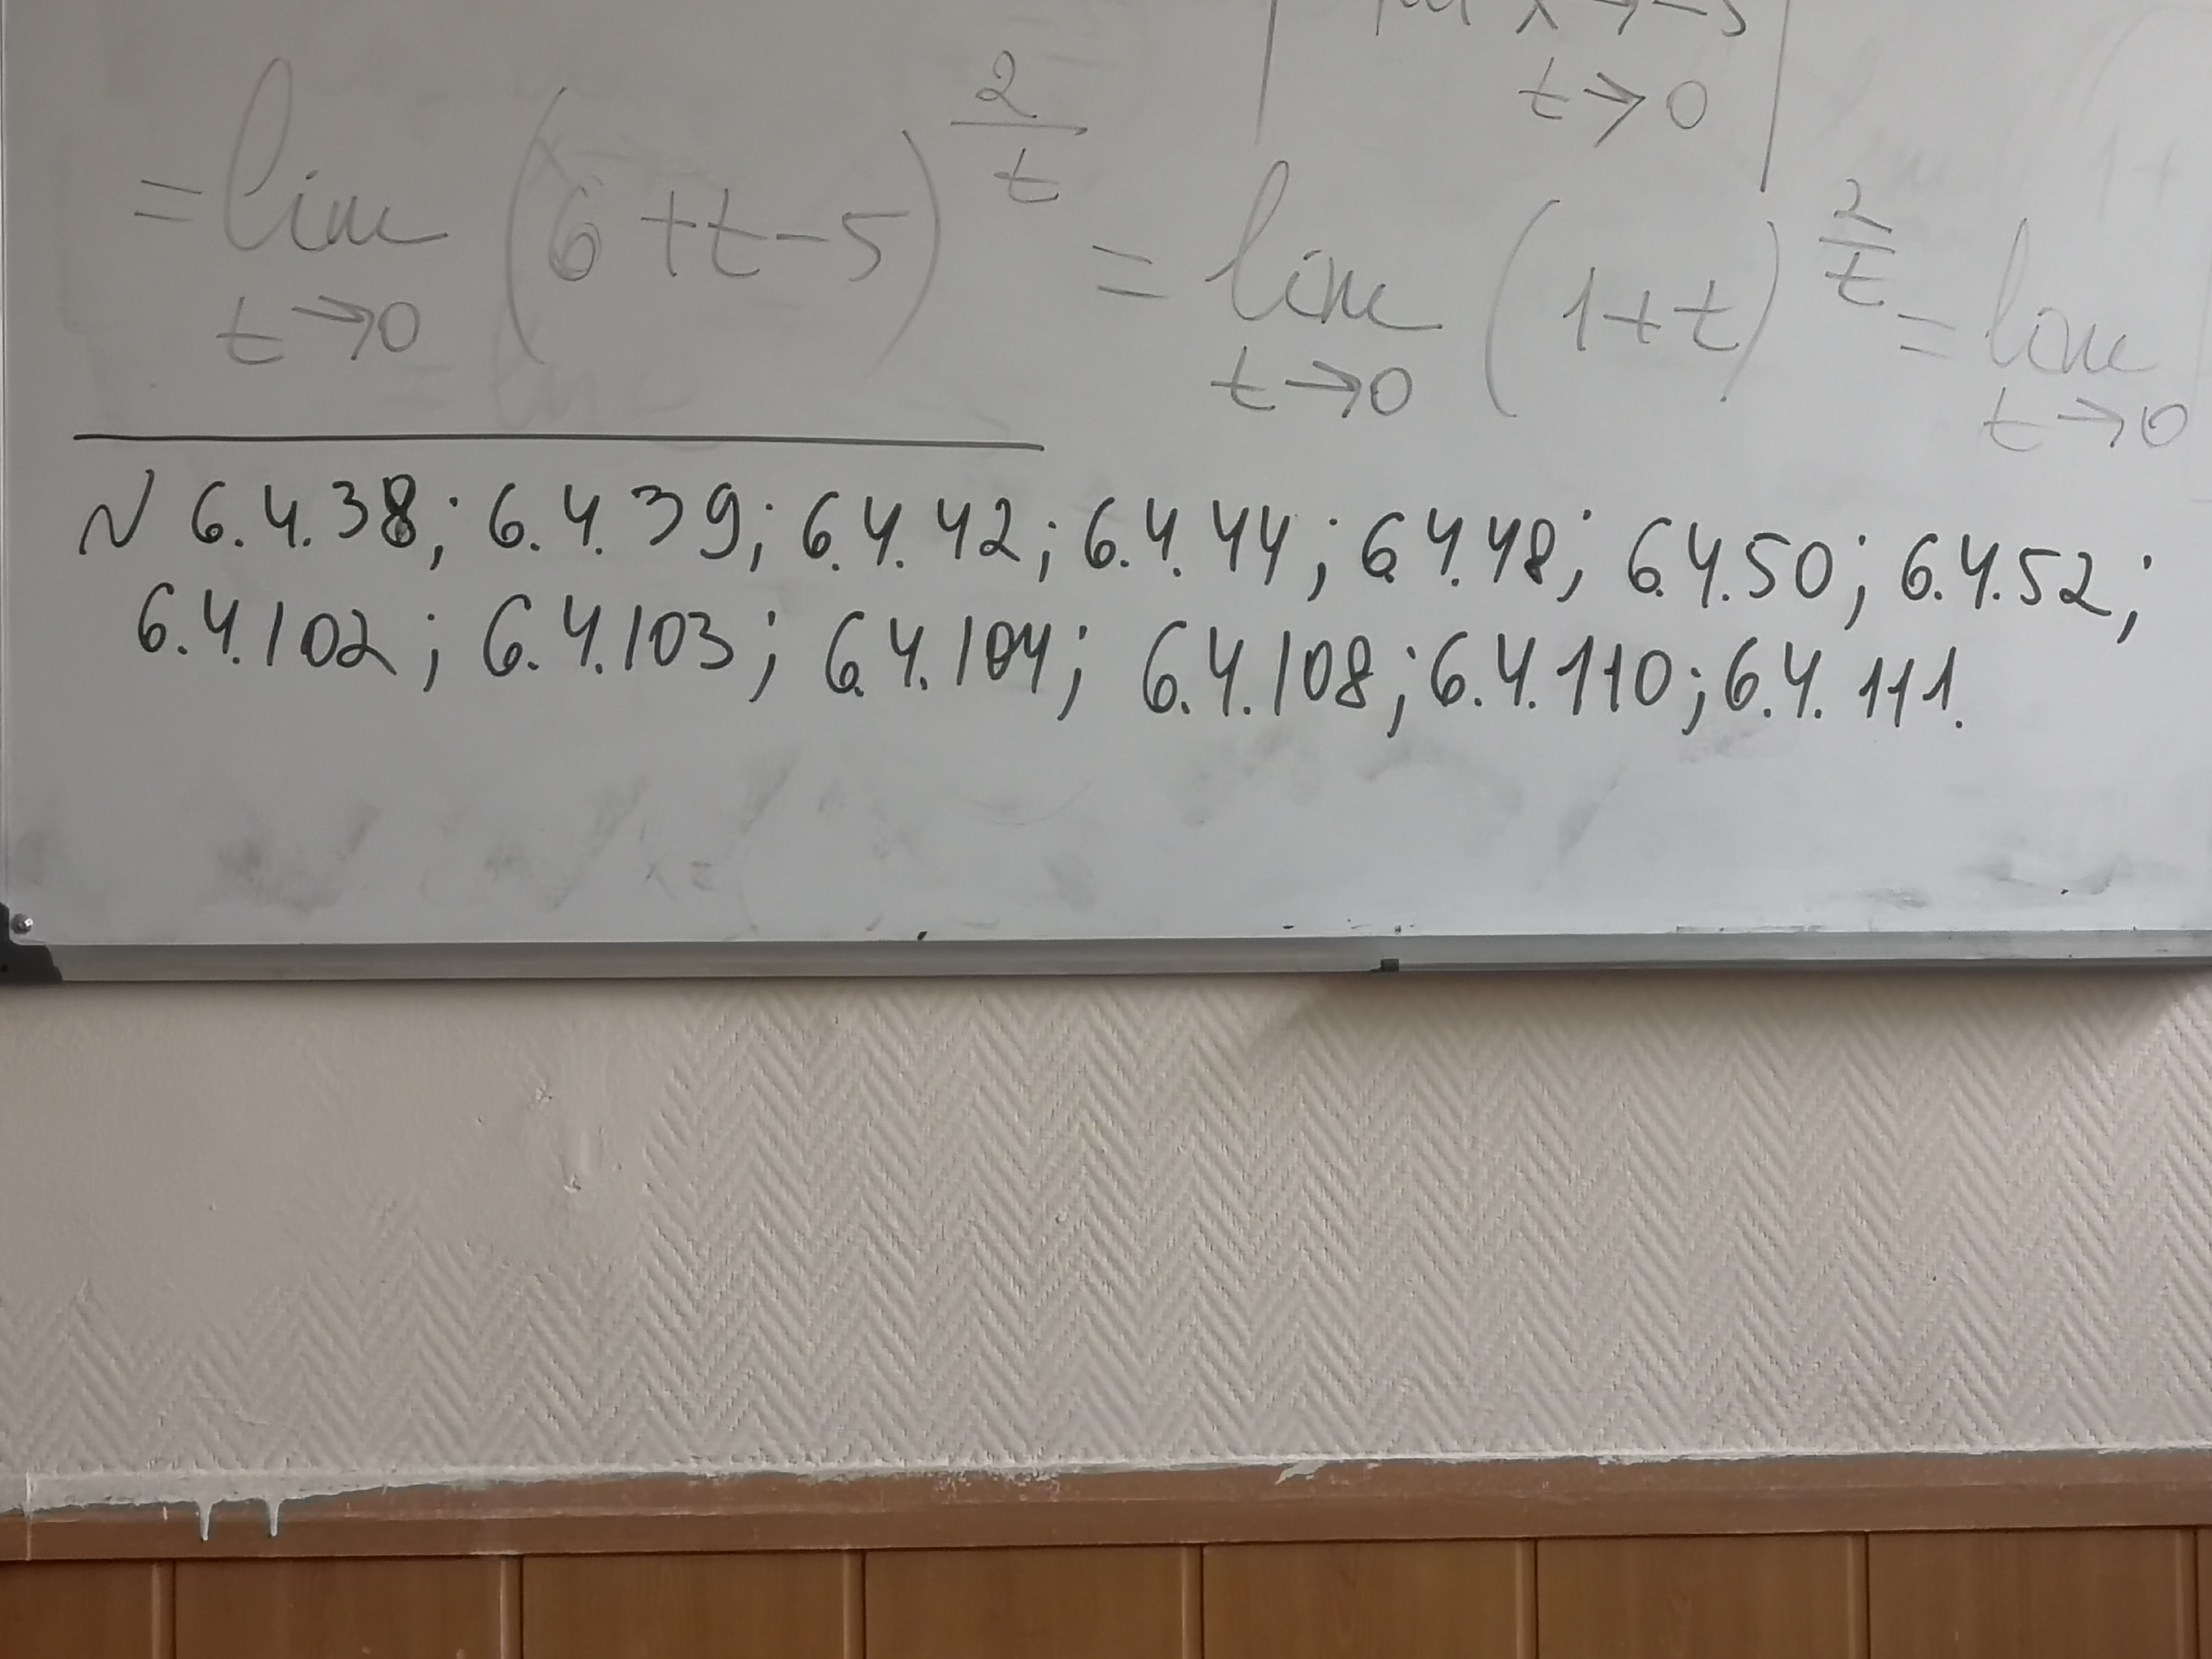 x → -5
t → 0
= lim (6 + t - 5)^(2/t) = lim (1 + t)^(2/t) = lim
t → 0 t → 0 t → 0
N 6.4.38; 6.4.39; 6.4.42; 6.4.44; 6.4.48; 6.4.50; 6.4.52;
6.4.102; 6.4.103; 6.4.104; 6.4.108; 6.4.110; 6.4.111.